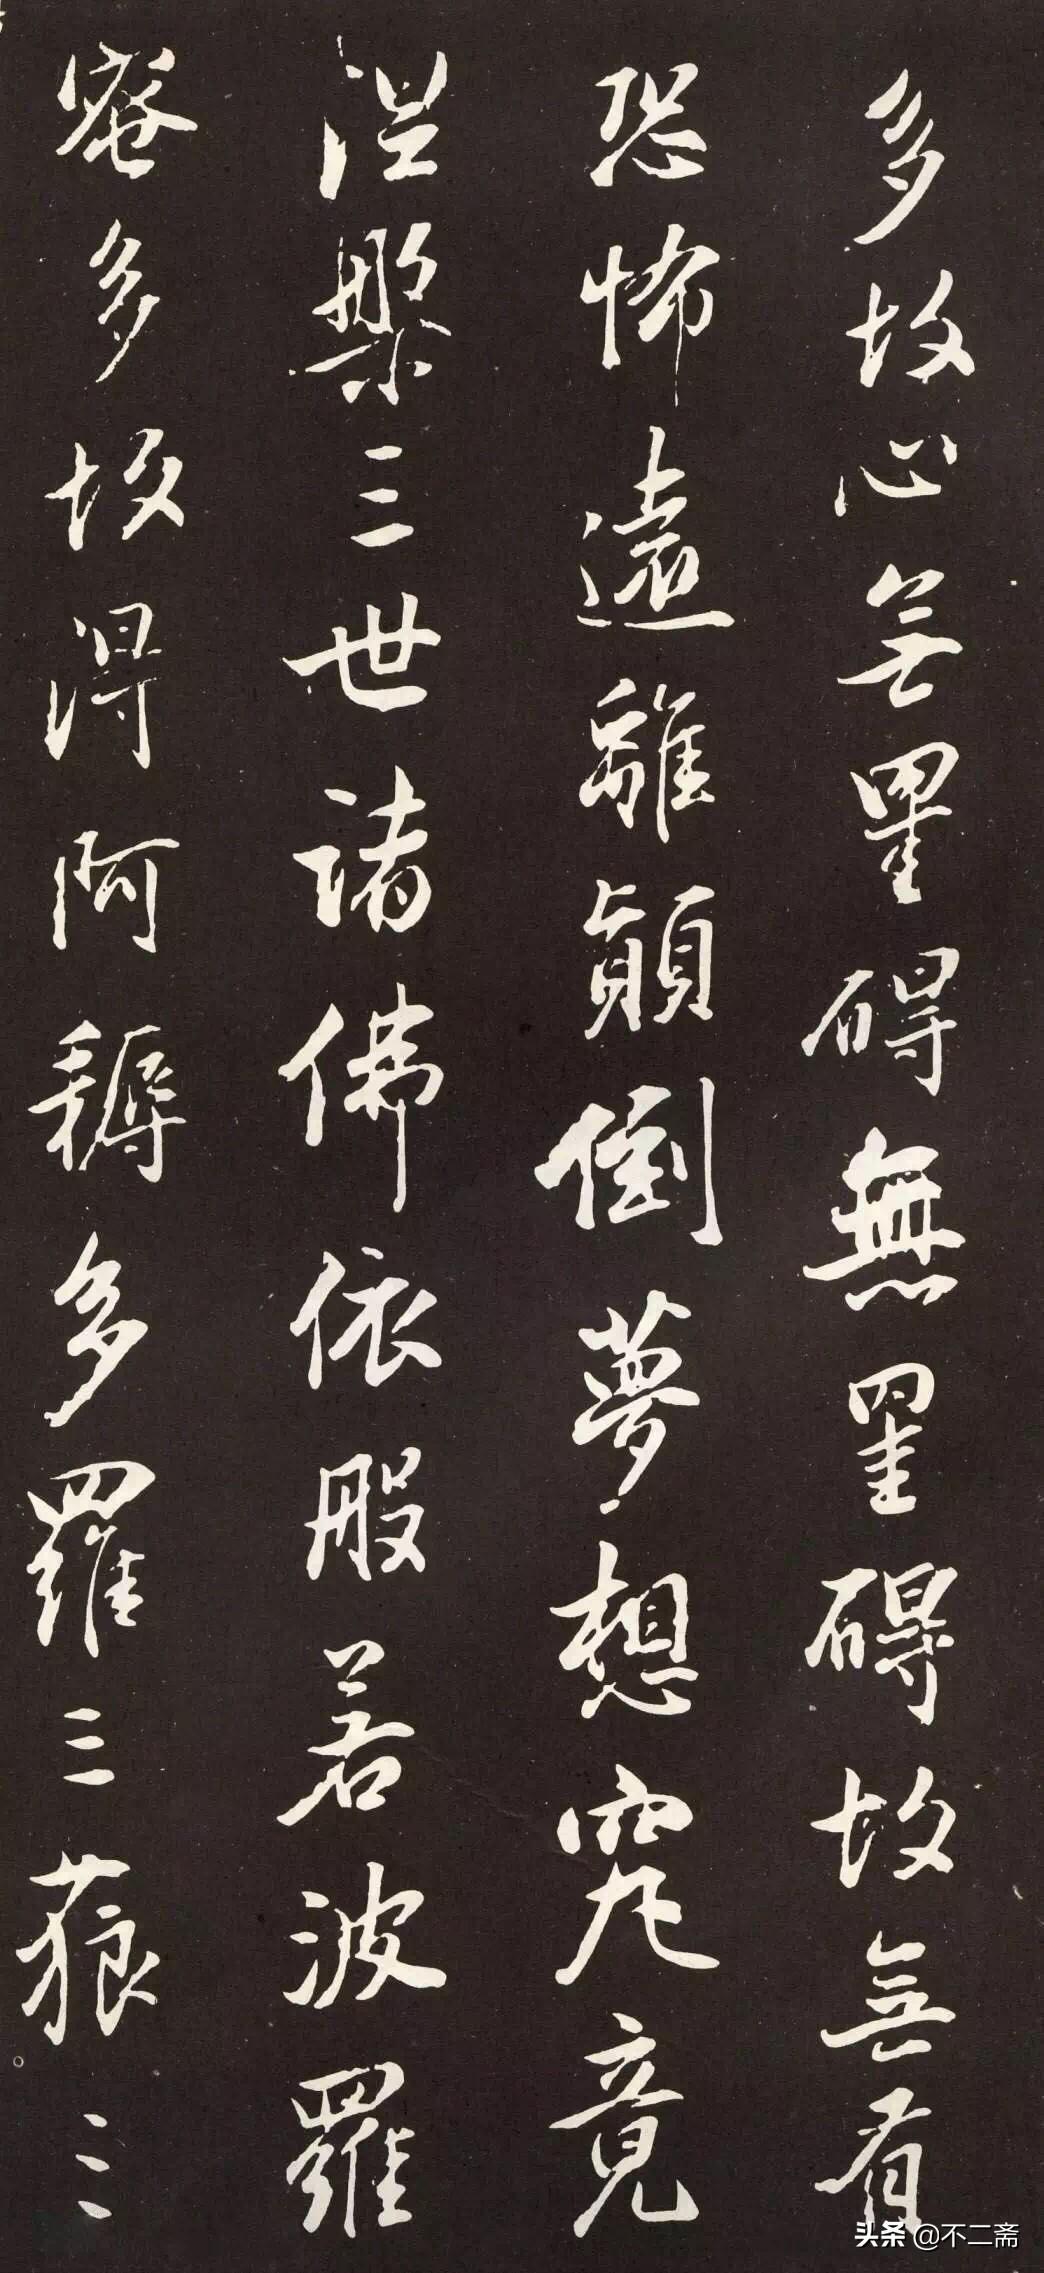 多故心無罣碍無罣碍故無有
恐怖遠離顛倒夢想究竟
涅槃三世諸佛依般若波羅
蜜多故得阿耨多羅三藐三
头条 @不二斋